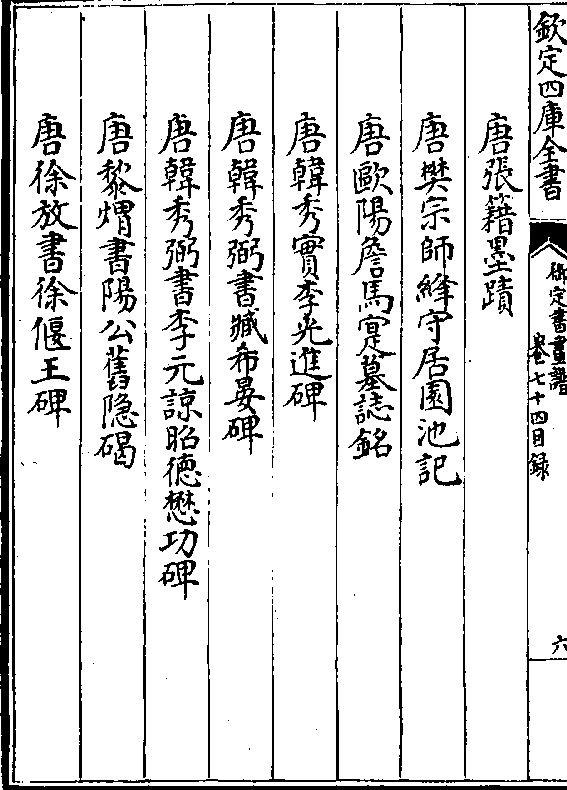 欽定四庫全書
御定書畫譜
卷七十四目録
六
唐張籍墨蹟
唐樊宗師絳守居園池記
唐歐陽詹馬寔墓誌銘
唐韓秀實李光進碑
唐韓秀弼書臧希晏碑
唐韓秀弼書李元諒昭德懋功碑
唐黎煟書陽公舊隐碣
唐徐放書徐偃王碑